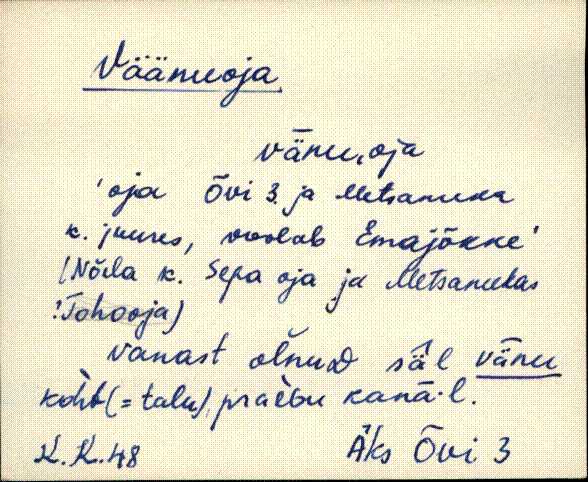 Väänuoja
vǟnu, oja
'oja Õvi 3. ja Metsanuka
k. juures, voolab Emajõkke'
(Nõela k. Sepa oja ja Metsanukas
: Tohooja)
vanast olnuD sä̀l vǟnu
kòht (= talu), pràèɢu kanā·l.
K. K. 48 Äks Õvi 3